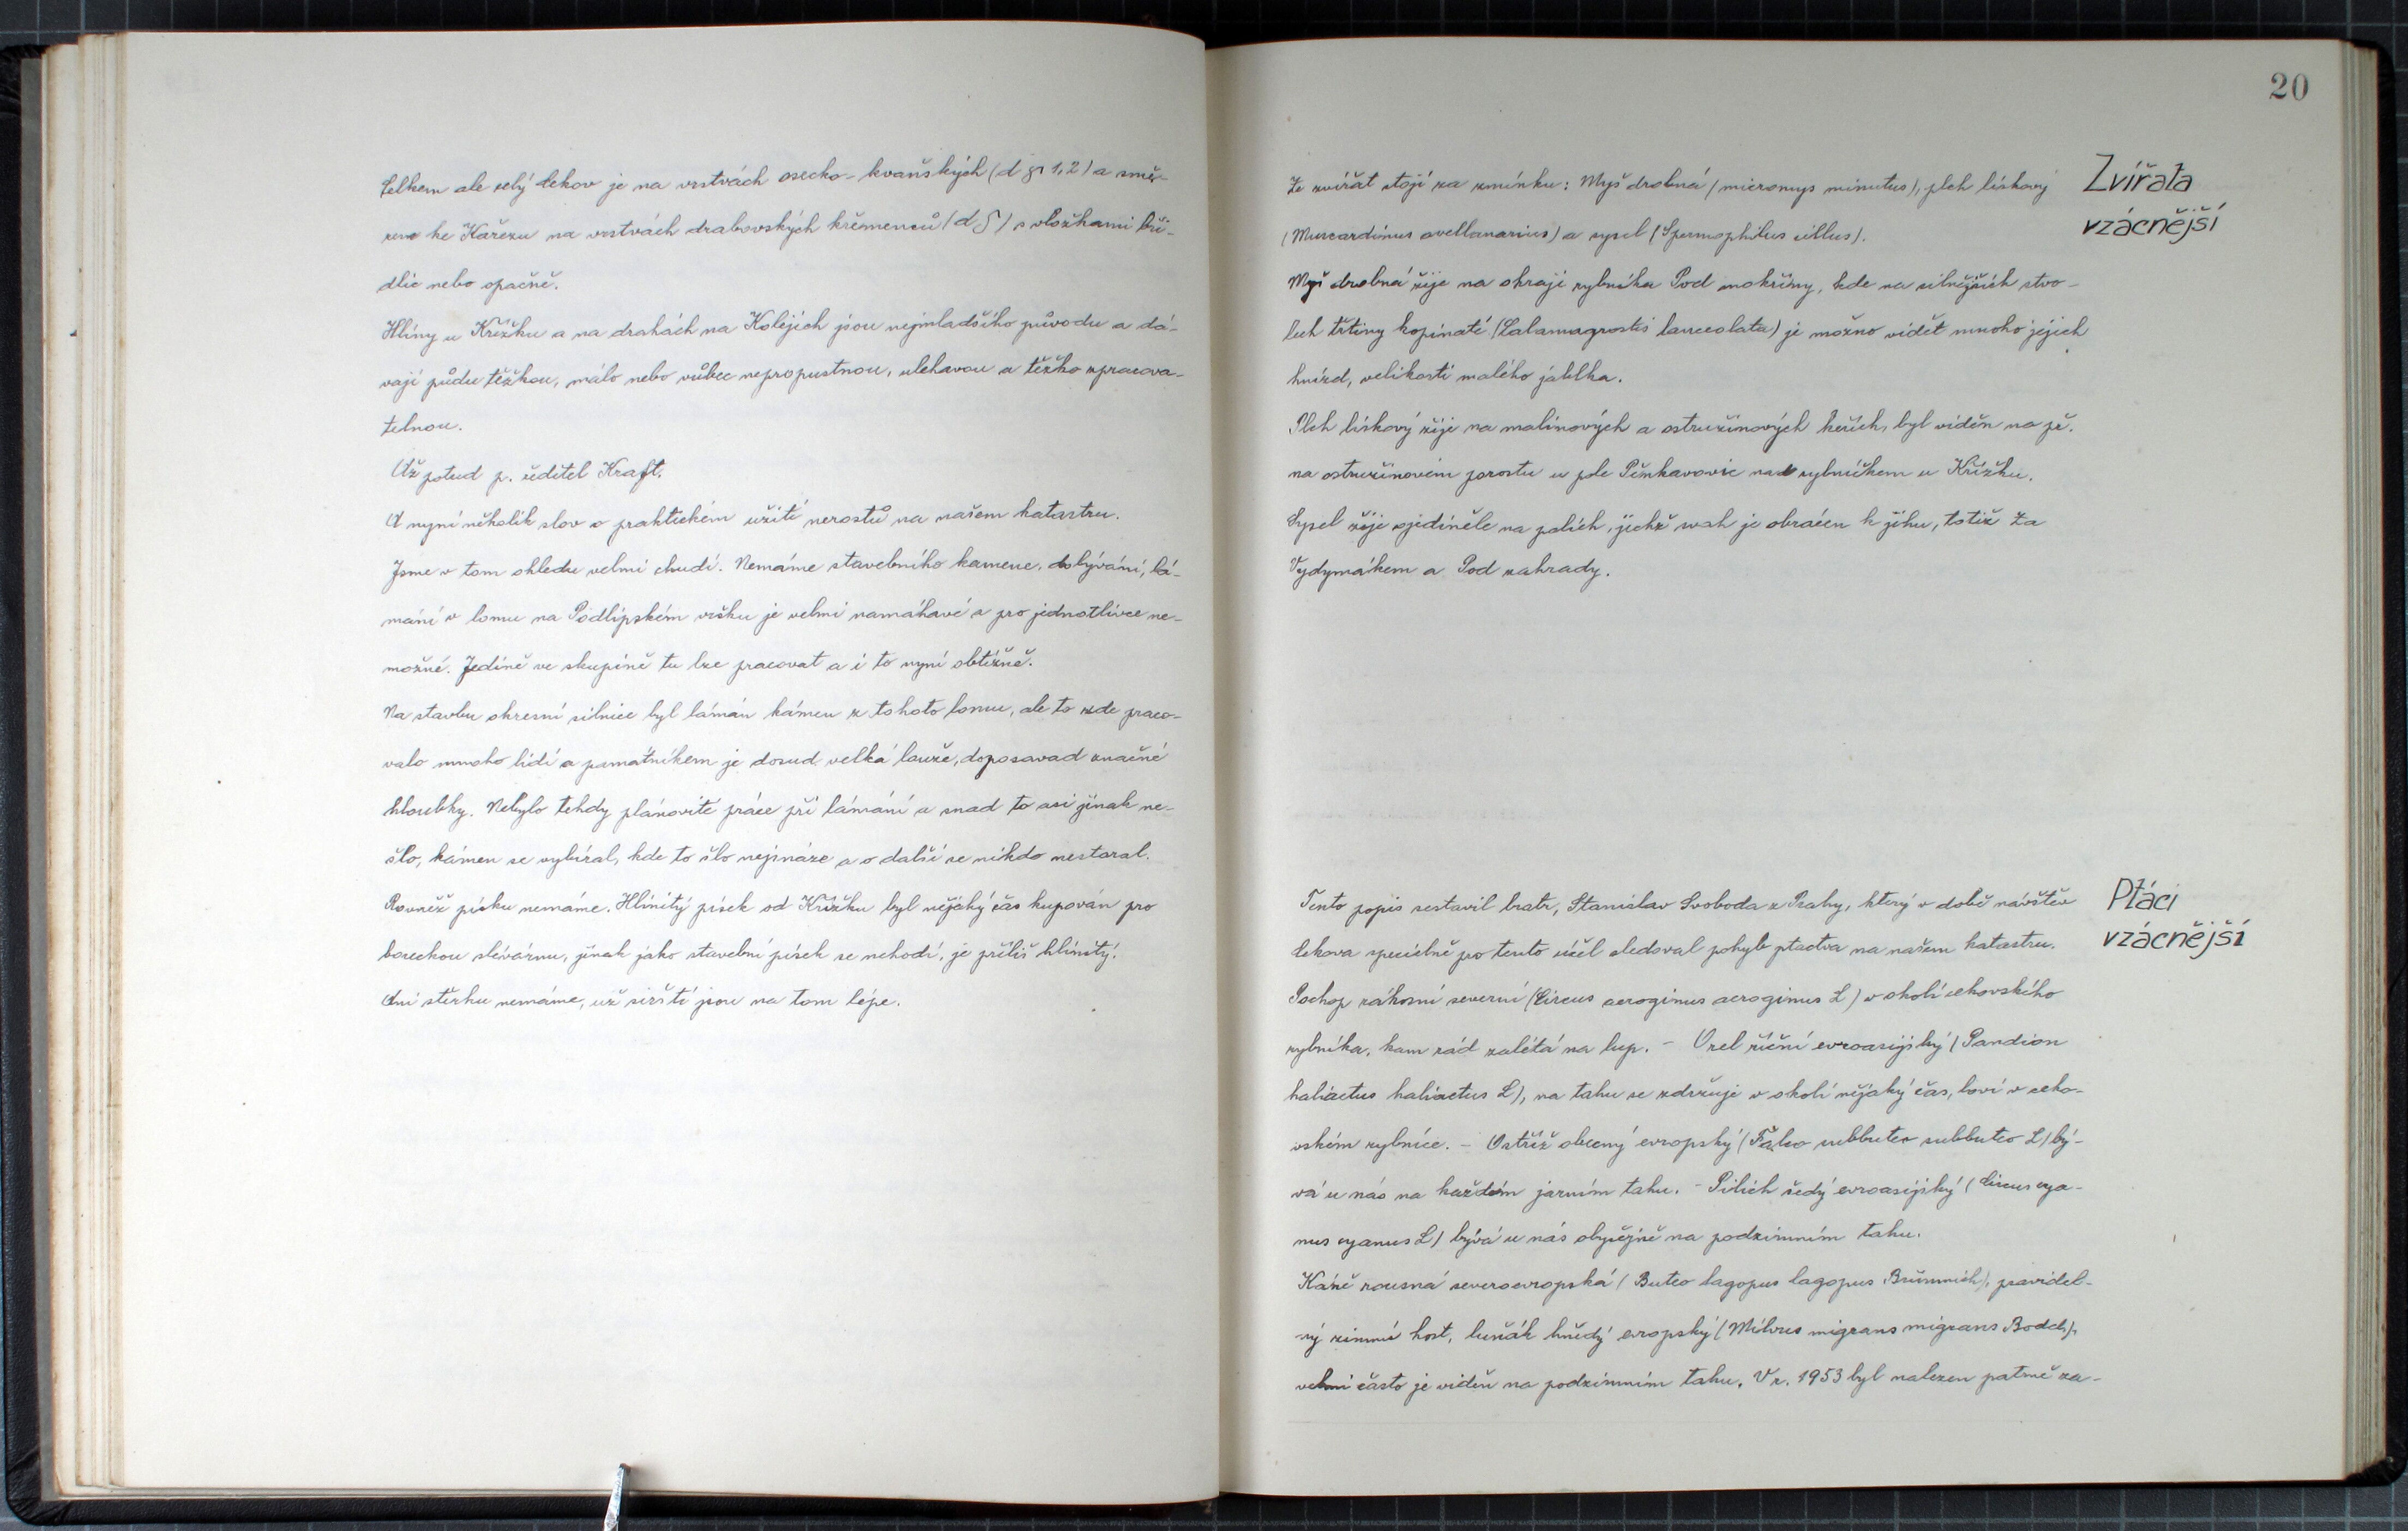 Celkem ale celý Cekov je na vrstvách osecko-kvaňských (d γ 1,2) a smě-
rem ke Kařezu na vrstvách drabovských křemenců (d δ) s vložkami bři-
dlic nebo opačně.
Hlíny u Křížku a na drahách na Kolejích jsou nejmladšího původu a dá-
vají půdu těžkou, málo nebo vůbec nepropustnou, ulehavou a těžko zpracova-
telnou.
Až potud p. ředitel Kraft.
A nyní několik slov o praktickém užití nerostů na našem katastru.
Jsme v tom ohledu velmi chudí. Nemáme stavebního kamene, dobývání, lá-
mání v lomu na Podlipském vršku je velmi namáhavé a pro jednotlivce ne-
možné. Jedině ve skupině tu lze pracovat a i to nyní obtížně.
Na stavbu okresní silnice byl lámán kámen z tohoto lomu, ale to zde praco-
valo mnoho lidí a památníkem je dosud velká louže, doposavad značné
hloubky. Nebylo tehdy plánovité práce při lámání a snad to asi jinak ne-
šlo, kámen se vybíral, kde to šlo nejsnáze a o další se nikdo nestaral.
Rovněž písku nemáme. Hlinitý písek od Křížku byl nějaký čas kupován pro
boreckou slévárnu, jinak jako stavební písek se nehodí, je příliš hlinitý.
Ani štěrku nemáme, už sirští jsou na tom lépe.
20
Zvířata
vzácnější
Ze zvířat stojí za zmínku: Myš drobná (micromys minutus), plch lískový
(Muscardinus avellanarius) a sysel (Spermophilus cillus).
Myš drobná žije na okraji rybníka Pod mokřiny, kde na silnějších stvo-
lech třtiny kopinaté (Calamagrostis lanceolata) je možno vidět mnoho jejich
hnízd, velikosti malého jablka.
Plch lískový žije na malinových a ostružinových keřích, byl viděn na př.
na ostružinovém porostu u pole Pěnkavovic nad rybníčkem u Křížku.
Sysel žije ojediněle na polích, jichž svah je obrácen k jihu, totiž Za
Vydymákem a Pod zahrady.
Ptáci
vzácnější
Tento popis sestavil bratr, Stanislav Svoboda z Prahy, který v době návštěv
Cekova specielně pro tento účel sledoval pohyb ptactva na našem katastru.
Pochop rákosní severní (Circus aeroginus aeroginus L) v okolí cekovského
rybníka, kam rád zalétá na lup. - Orel říční evroasijský (Pandion
haliaetus haliaetus L), na tahu se zdržuje v okolí nějaký čas, loví v ceko-
vském rybníce. - Ostříž obecný evropský (Falco subbuteo subbuteo L) bý-
vá u nás na každém jarním tahu. - Pilich šedý evroasijský (Circus cya-
nus cyanus L) bývá u nás obyčejně na podzimním tahu.
Káně rousná severoevropská (Buteo lagopus lagopus Brünnich), pravidel-
ný zimní host, luňák hnědý evropský (Milvus migrans migrans Bodd.),
velmi často je viděn na podzimním tahu. V r. 1953 byl nalezen patrně za-